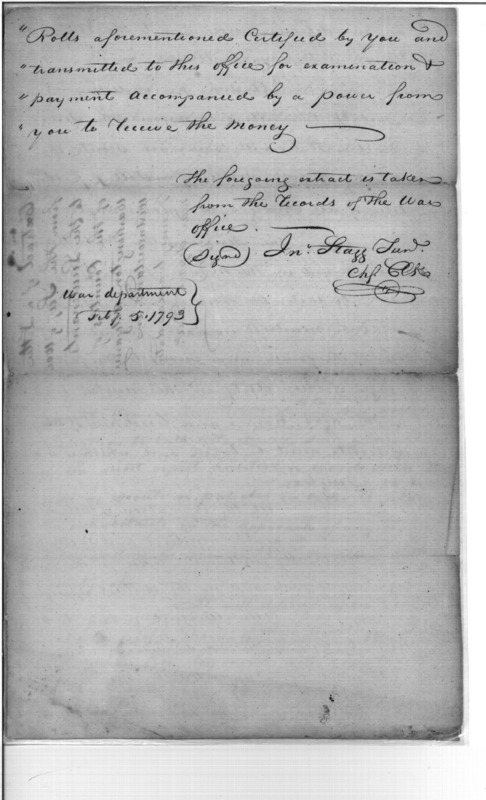 "Rolls aforementioned Certified by you and
"transmitted to this office for examination &
"payment accompanied by a power from
"you to receive the money
The foregoing extract is taken
from the records of the War
office.
(Signd) Jnº Stagg Junr.
Chf. Clk
War department
Feby 5. 1793